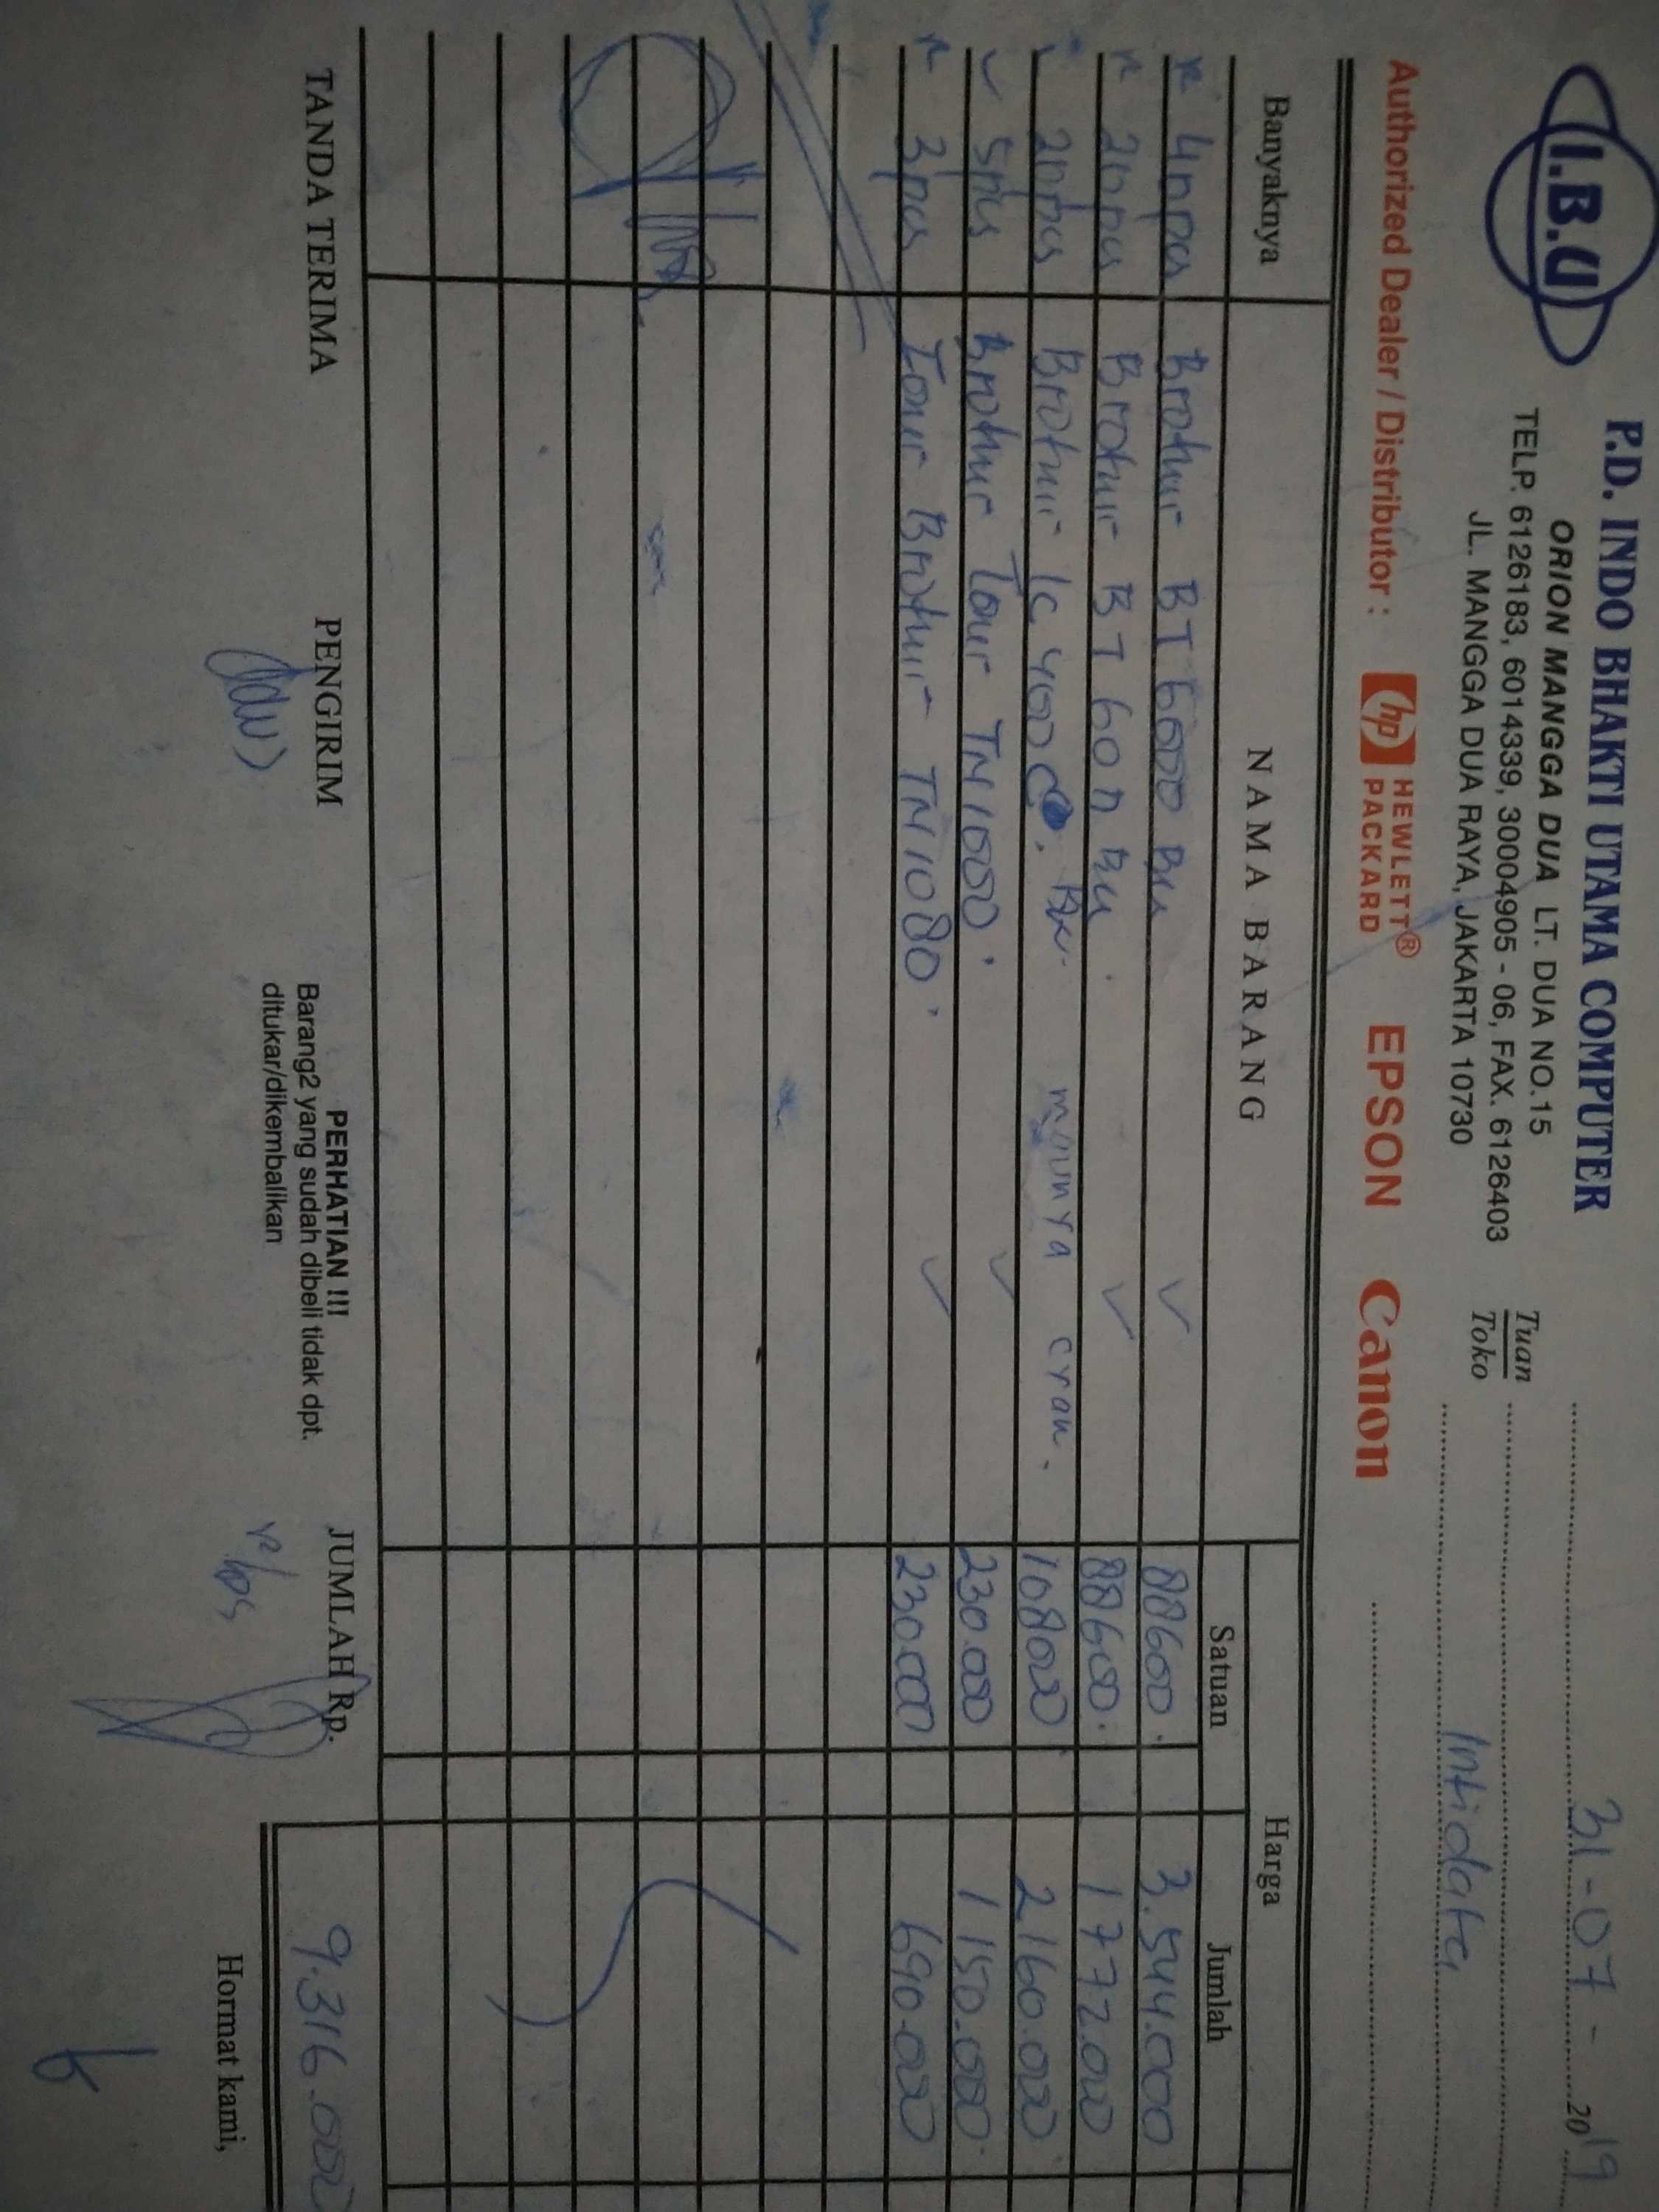 I.B.U
P.D. INDO BHAKTI UTAMA COMPUTER
ORION MANGGA DUA LT. DUA NO.15
TELP. 6126183, 6014339, 30004905 - 06, FAX. 6126403
JL. MANGGA DUA RAYA, JAKARTA 10730
31-07- 2019
Tuan
Toko
Intidata
Authorized Dealer / Distributor : hp HEWLETT® PACKARD EPSON Canon
Banyaknya NAMA BARANG Harga
Satuan Jumlah
Brother BT 6000 88600. 3.544.000
Brother BT 88600. 1 772.000
Brother 108000 2.160.000
5 pcs Brother Toner TN 1000. 230.000 1 150.000.
3 pcs Toner Brother TN 1080. 230.000 690.000
TANDA TERIMA PENGIRIM
PERHATIAN !!!
Barang2 yang sudah dibeli tidak dpt.
ditukar/dikembalikan
JUMLAH Rp. 9.316.000
Hormat kami,